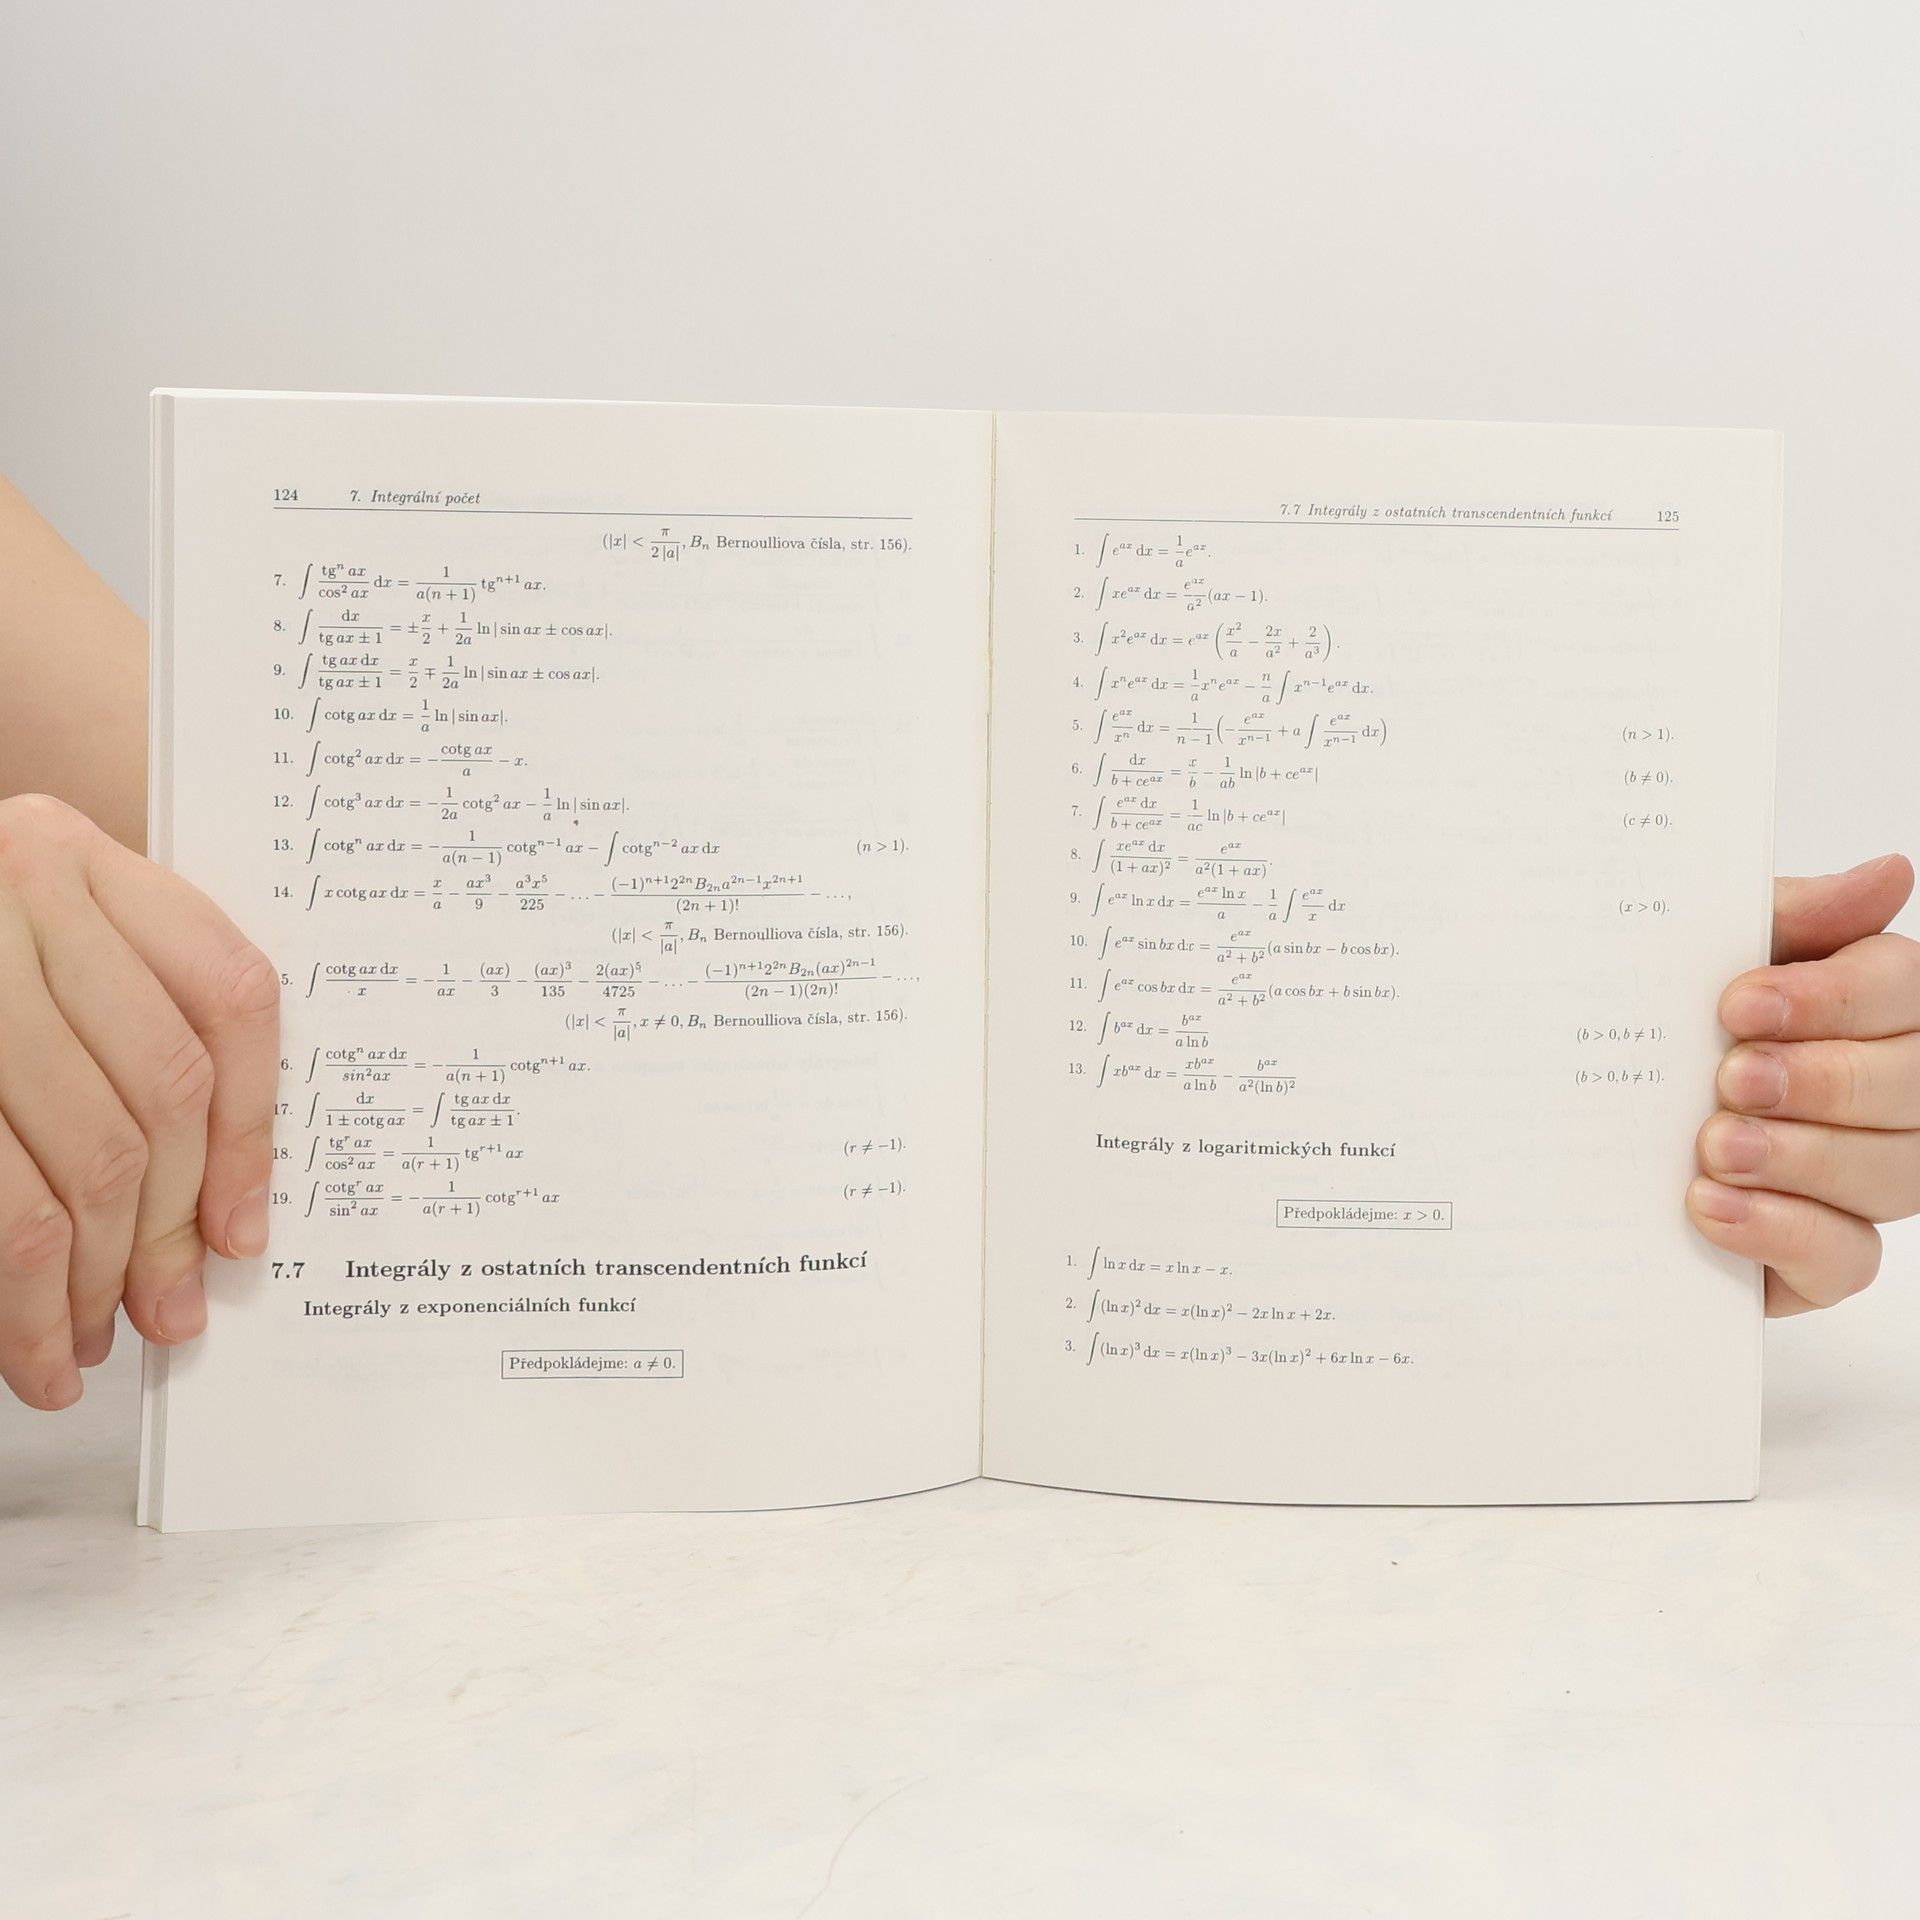 124 7. Integrální počet
(|x| < π/(2|a|), Bₙ Bernoulliova čísla, str. 156).
7. ∫ tgⁿ ax / cos² ax dx = 1/(a(n + 1)) tgⁿ⁺¹ ax.
8. ∫ dx/(tg ax ± 1) = ±x/2 + 1/(2a) ln | sin ax ± cos ax|.
9. ∫ tg ax dx/(tg ax ± 1) = x/2 ∓ 1/(2a) ln | sin ax ± cos ax|.
10. ∫ cotg ax dx = 1/a ln | sin ax|.
11. ∫ cotg² ax dx = −(cotg ax)/a − x.
12. ∫ cotg³ ax dx = −1/(2a) cotg² ax − 1/a ln | sin ax|.
13. ∫ cotgⁿ ax dx = −1/(a(n − 1)) cotgⁿ⁻¹ ax − ∫ cotgⁿ⁻² ax dx (n > 1).
14. ∫ x cotg ax dx = x/a − ax³/9 − a³x⁵/225 − … − (−1)ⁿ⁺¹2²ⁿB₂ₙa²ⁿ⁻¹x²ⁿ⁺¹/(2n + 1)! − …,
(|x| < π/|a|, Bₙ Bernoulliova čísla, str. 156).
5. ∫ cotg ax dx / x = −1/(ax) − (ax)/3 − (ax)³/135 − 2(ax)⁵/4725 − … − (−1)ⁿ⁺¹2²ⁿB₂ₙ(ax)²ⁿ⁻¹/((2n − 1)(2n)!) − …,
(|x| < π/|a|, x ≠ 0, Bₙ Bernoulliova čísla, str. 156).
6. ∫ cotgⁿ ax dx / sin²ax = −1/(a(n + 1)) cotgⁿ⁺¹ ax.
17. ∫ dx/(1 ± cotg ax) = ∫ tg ax dx/(tg ax ± 1).
18. ∫ tgʳ ax / cos² ax = 1/(a(r + 1)) tgʳ⁺¹ ax (r ≠ −1).
19. ∫ cotgʳ ax / sin² ax = −1/(a(r + 1)) cotgʳ⁺¹ ax (r ≠ −1).
7.7 Integrály z ostatních transcendentních funkcí
Integrály z exponenciálních funkcí
Předpokládejme: a ≠ 0.
7.7 Integrály z ostatních transcendentních funkcí 125
1. ∫ eᵃˣ dx = 1/a eᵃˣ.
2. ∫ xeᵃˣ dx = eᵃˣ/a² (ax − 1).
3. ∫ x²eᵃˣ dx = eᵃˣ (x²/a − 2x/a² + 2/a³).
4. ∫ xⁿeᵃˣ dx = 1/a xⁿeᵃˣ − n/a ∫ xⁿ⁻¹eᵃˣ dx.
5. ∫ eᵃˣ/xⁿ dx = 1/(n − 1) (−eᵃˣ/xⁿ⁻¹ + a ∫ eᵃˣ/xⁿ⁻¹ dx) (n > 1).
6. ∫ dx/(b + ceᵃˣ) = x/b − 1/(ab) ln |b + ceᵃˣ| (b ≠ 0).
7. ∫ eᵃˣ dx/(b + ceᵃˣ) = 1/(ac) ln |b + ceᵃˣ| (c ≠ 0).
8. ∫ xeᵃˣ dx/(1 + ax)² = eᵃˣ/(a²(1 + ax)).
9. ∫ eᵃˣ ln x dx = eᵃˣ ln x / a − 1/a ∫ eᵃˣ/x dx (x > 0).
10. ∫ eᵃˣ sin bx dx = eᵃˣ/(a² + b²) (a sin bx − b cos bx).
11. ∫ eᵃˣ cos bx dx = eᵃˣ/(a² + b²) (a cos bx + b sin bx).
12. ∫ bᵃˣ dx = bᵃˣ/(a ln b) (b > 0, b ≠ 1).
13. ∫ xbᵃˣ dx = xbᵃˣ/(a ln b) − bᵃˣ/(a²(ln b)²) (b > 0, b ≠ 1).
Integrály z logaritmických funkcí
Předpokládejme: x > 0.
1. ∫ ln x dx = x ln x − x.
2. ∫ (ln x)² dx = x(ln x)² − 2x ln x + 2x.
3. ∫ (ln x)³ dx = x(ln x)³ − 3x(ln x)² + 6x ln x − 6x.